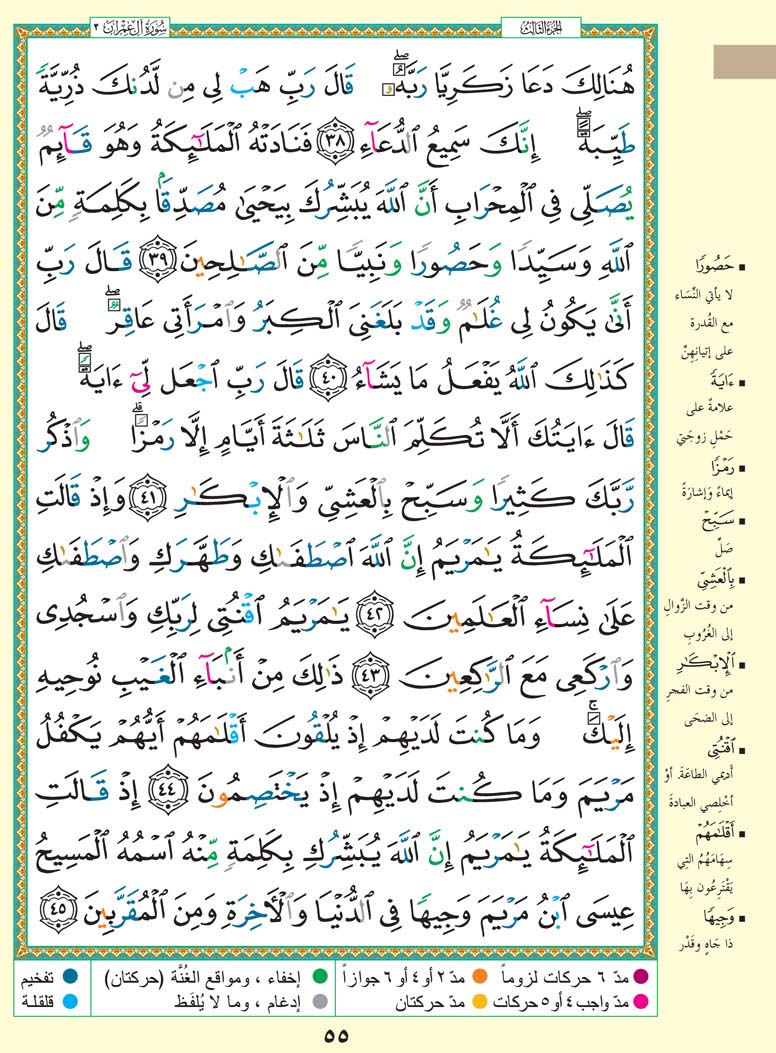 سُورَةُ آلِ عِمْرَان ٣
الجُزءُ الثَّالِثُ
هُنَالِكَ دَعَا زَكَرِيَّا رَبَّهُۥ ۖ قَالَ رَبِّ هَبْ لِى مِن لَّدُنكَ ذُرِّيَّةً
طَيِّبَةً ۖ إِنَّكَ سَمِيعُ الدُّعَآءِ ﴿٣٨﴾ فَنَادَتْهُ ٱلْمَلَـٰٓئِكَةُ وَهُوَ قَآئِمٌ
يُصَلِّى فِى ٱلْمِحْرَابِ أَنَّ ٱللَّهَ يُبَشِّرُكَ بِيَحْيَىٰ مُصَدِّقًۢا بِكَلِمَةٍ مِّنَ
ٱللَّهِ وَسَيِّدًا وَحَصُورًا وَنَبِيًّا مِّنَ ٱلصَّـٰلِحِينَ ﴿٣٩﴾ قَالَ رَبِّ
أَنَّىٰ يَكُونُ لِى غُلَـٰمٌ وَقَدْ بَلَغَنِىَ ٱلْكِبَرُ وَٱمْرَأَتِى عَاقِرٌ ۖ قَالَ
كَذَٰلِكَ ٱللَّهُ يَفْعَلُ مَا يَشَآءُ ﴿٤٠﴾ قَالَ رَبِّ ٱجْعَل لِّىٓ ءَايَةً ۖ
قَالَ ءَايَتُكَ أَلَّا تُكَلِّمَ ٱلنَّاسَ ثَلَـٰثَةَ أَيَّامٍ إِلَّا رَمْزًا ۗ وَٱذْكُر
رَّبَّكَ كَثِيرًا وَسَبِّحْ بِٱلْعَشِىِّ وَٱلْإِبْكَـٰرِ ﴿٤١﴾ وَإِذْ قَالَتِ
ٱلْمَلَـٰٓئِكَةُ يَـٰمَرْيَمُ إِنَّ ٱللَّهَ ٱصْطَفَىٰكِ وَطَهَّرَكِ وَٱصْطَفَىٰكِ
عَلَىٰ نِسَآءِ ٱلْعَـٰلَمِينَ ﴿٤٢﴾ يَـٰمَرْيَمُ ٱقْنُتِى لِرَبِّكِ وَٱسْجُدِى
وَٱرْكَعِى مَعَ ٱلرَّٰكِعِينَ ﴿٤٣﴾ ذَٰلِكَ مِنْ أَنۢبَآءِ ٱلْغَيْبِ نُوحِيهِ
إِلَيْكَ ۚ وَمَا كُنتَ لَدَيْهِمْ إِذْ يُلْقُونَ أَقْلَـٰمَهُمْ أَيُّهُمْ يَكْفُلُ
مَرْيَمَ وَمَا كُنتَ لَدَيْهِمْ إِذْ يَخْتَصِمُونَ ﴿٤٤﴾ إِذْ قَالَتِ
ٱلْمَلَـٰٓئِكَةُ يَـٰمَرْيَمُ إِنَّ ٱللَّهَ يُبَشِّرُكِ بِكَلِمَةٍ مِّنْهُ ٱسْمُهُ ٱلْمَسِيحُ
عِيسَى ٱبْنُ مَرْيَمَ وَجِيهًا فِى ٱلدُّنْيَا وَٱلْـَٔاخِرَةِ وَمِنَ ٱلْمُقَرَّبِينَ ﴿٤٥﴾
▪ حَصُورًا
لا يأتي النِّسَاء
مع القُدرة
على إتيانِهِنَّ
▪ ءَايَةً
علامةً على
حَمْلِ زوجتي
▪ رَمْزًا
إيماءً وَإشارَةً
▪ سَبِّحْ
صَلِّ
▪ بِٱلْعَشِىِّ
من وقت الزَّوالِ
إلى الغُرُوبِ
▪ ٱلْإِبْكَـٰرِ
من وقت الفجرِ
إلى الضحَى
▪ ٱقْنُتِى
أديمي الطاعَةَ. أوْ
أخْلِصي العبادةَ
▪ أَقْلَـٰمَهُمْ
سِهَامَهُمُ التي
يَقْتَرِعُون بِهَا
▪ وَجِيهًا
ذا جَاهٍ وقَدْر
مدّ ٦ حركات لزوماً
مدّ ٢ أو ٤ أو ٦ جوازاً
إخفاء ، ومواقع الغُنَّة (حركتان)
تفخيم
مدّ واجب ٤ أو ٥ حركات
مدّ حركتان
إدغام ، وما لا يُلفَظ
قلقلة
٥٥